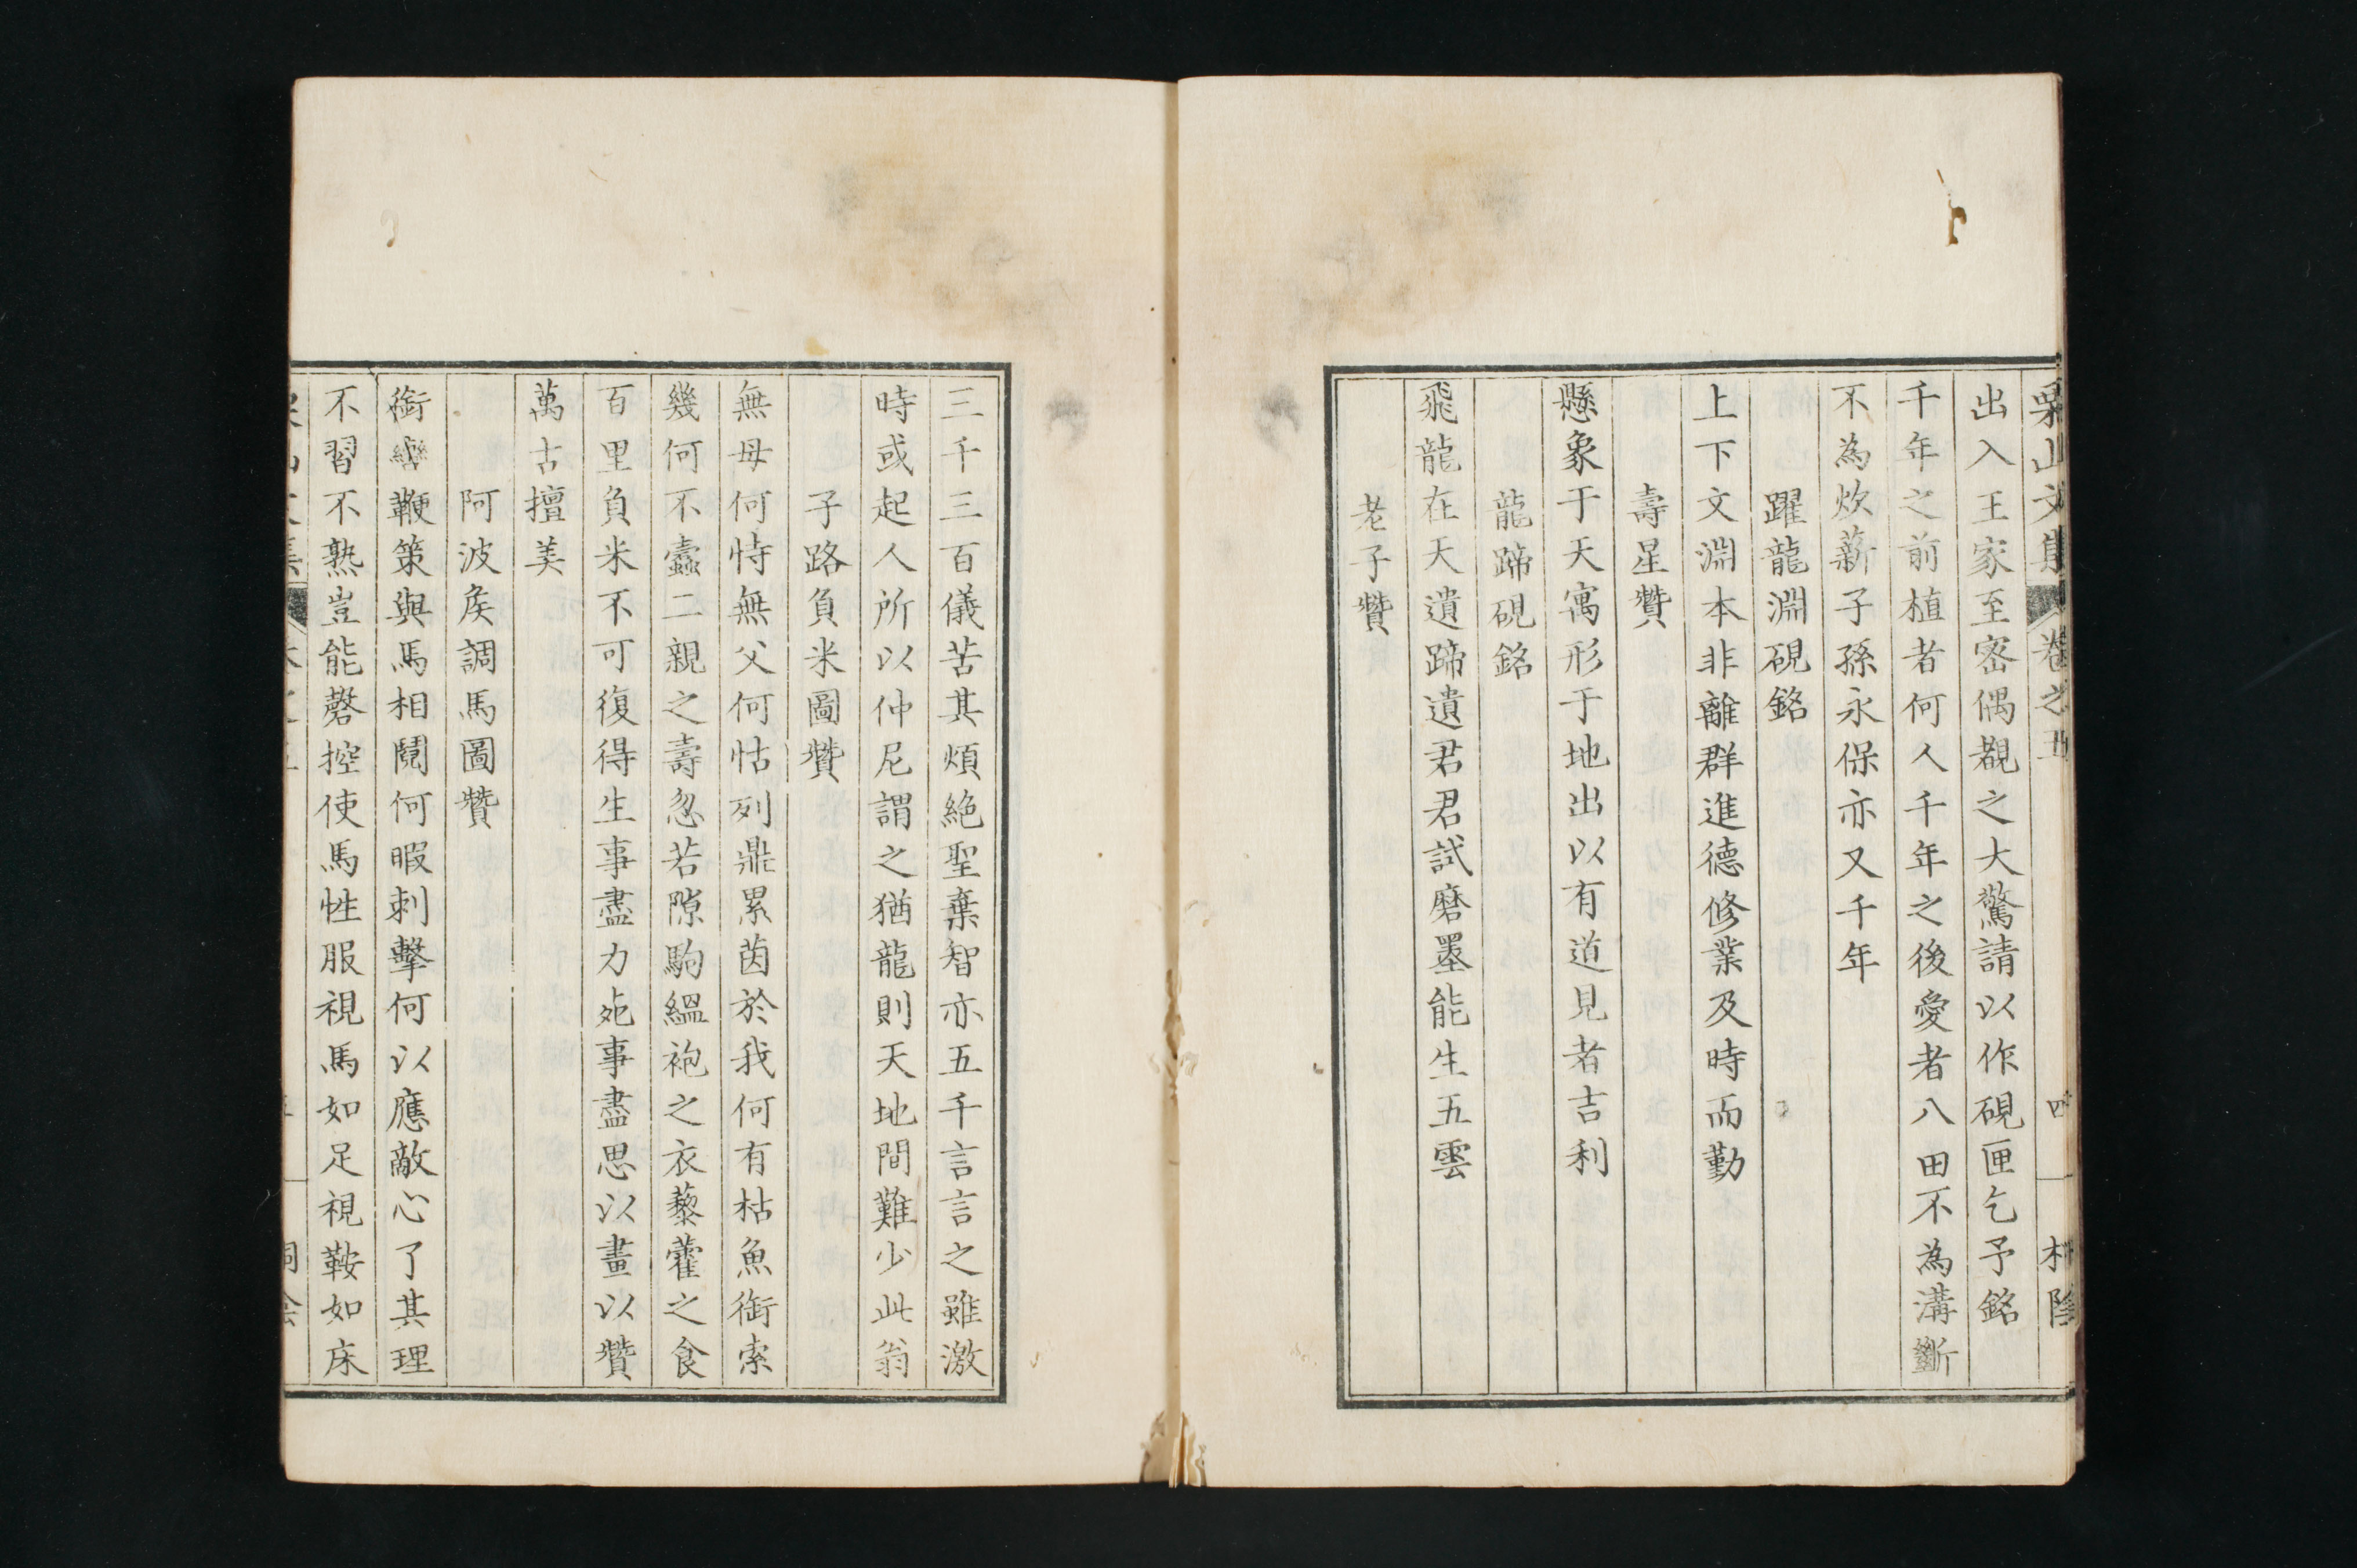 栗山文集 卷之五 四
出入王家至密偶覩之大驚請以作硯匣乞予銘
千年之前植者何人千年之後愛者八田不為溝斷
不為炊薪子孫永保亦又千年
躍龍淵硯銘
上下文淵本非離群進德修業及時而勤
壽星贊
懸象于天寓形于地出以有道見者吉利
龍蹄硯銘
飛龍在天遺蹄遺君君試磨墨能生五雲
老子贊
三千三百儀苦其煩絶聖棄智亦五千言言之雖激
時或起人所以仲尼謂之猶龍則天地間難少此翁
子路負米圖贊
無母何恃無父何怙列鼎累茵於我何有枯魚銜索
幾何不蠹二親之壽忽若隙駒縕袍之衣藜藿之食
百里負米不可復得生事盡力死事盡思以畫以贊
萬古擅美
阿波矦調馬圖贊
銜轡鞭策與馬相鬩何暇刺擊何以應敵心了其理
不習不熟豈能磬控使馬性服視馬如足視鞍如床